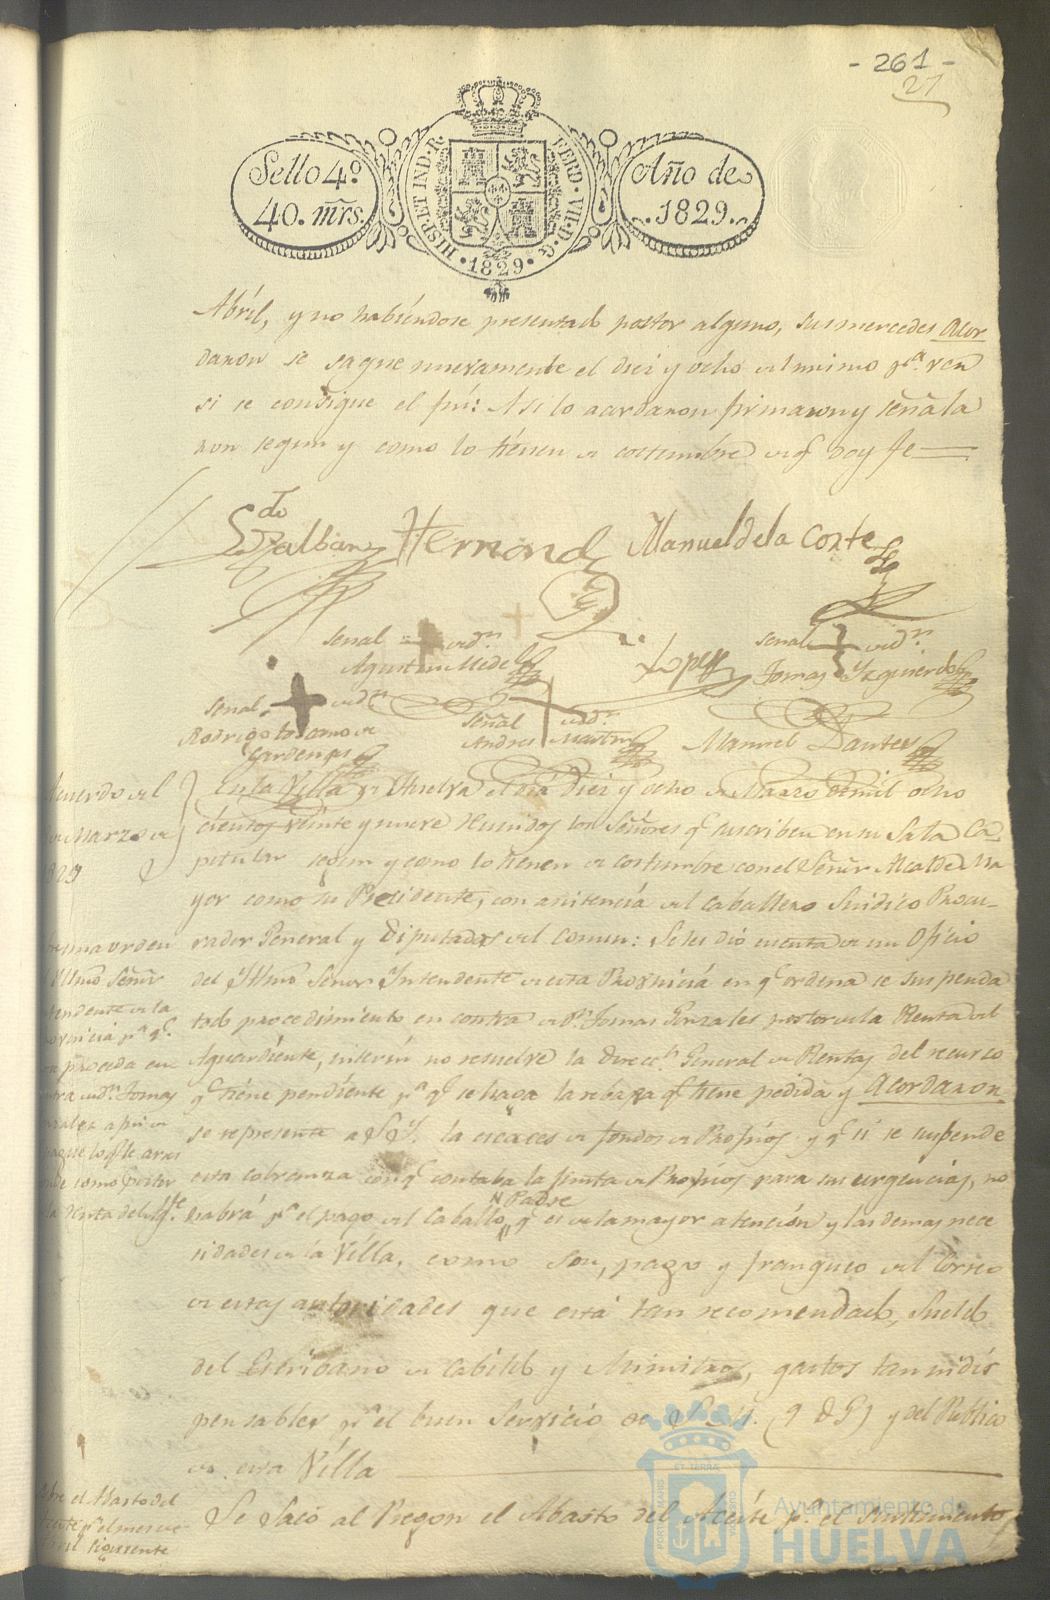 - 261 -
27
Sello 4º
40. mrs.
HISP. ET IND. R.
FERD. VII. D. G.
• 1829 •
Año de
1829.
Abril, y no habiéndose presentado postor alguno, sus mercedes Acor
daron se saque nuevamente el diez y ocho del mismo pª. ver
si se consigue el fin: Asi lo acordaron firmaron y señala
ron segun y como lo tienen de costumbre de q doy fe
Hernand
Manuel de la Corte
Señal de dn.
Agustin Midel
Lopez
Señal de dn.
Tomas Yzquierdo
Señal de dn
Rodrigo
Cardenas
Señal de dn.
Andres Martin
Manuel
Acuerdo del
de Marzo de
1829
En la Villa de Huelva el dia Diez y ocho de Marzo de mil ocho
cientos veinte y nueve reunidos los Señores q suscriben en su Sala Ca
pitular segun y como lo tienen de costumbre con el Señor Alcalde Ma
yor como su Presidente, con asistencia del Caballero Sindico Procu-
rador General y Diputados del Comun: Se les dió cuenta de un Oficio
del Yllmo Señor Yntendente de esta Provincia en q ordena se suspenda
todo procedimiento en contra de Dn. Tomas Gonzales postor de la Renta del
Aguardiente, interin no resuelve la Direccn. General de Rentas del recurso
q tiene pendiente pª q se haga la rebaxa q tiene pedida y Acordaron
se represente a S. Y. la escaces de fondos de Propios y q si se suspende
esta cobranza con q contaba la Junta de Propios para sus urgencias, no
habrá pª el pago del Caballo Padre q es de la mayor atención y las demas nece
sidades de la Villa, como son, pago y franqueo del Correo
de estas autoridades que está tan recomendado, Sueldo
del Escribano de Cabildo y Ministros, gastos tan indis
pensables pª el buen Servicio de S. M. (q D G) y del Publico
de esta Villa
una orden
Yllmo Señor
tendente de la
ovincia pª q
proceda en
tra de dn. Tomas
como postor
Renta del
Sobre el Abasto del
Se Sacó al Pregon el Abasto del Aceite pª el surtimiento
Ayuntamiento de
HUELVA